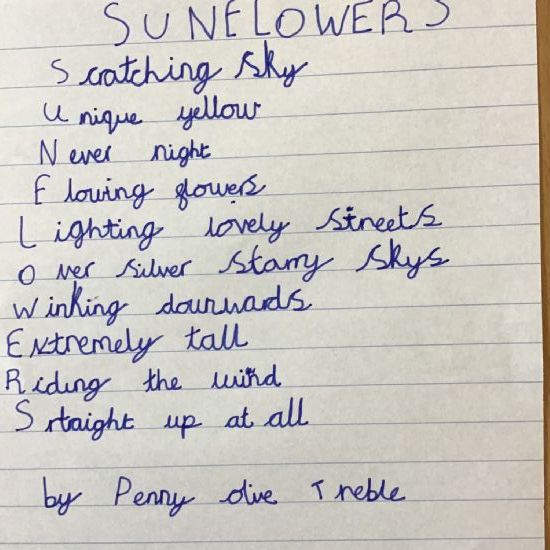 SUNFLOWERS
Scratching sky
Unique yellow
Never night
Flowing flowers
Lighting lovely streets
Over silver starry skys
Winking downwards
Extremely tall
Riding the wind
Srtaight up at all
by Penny olive Treble